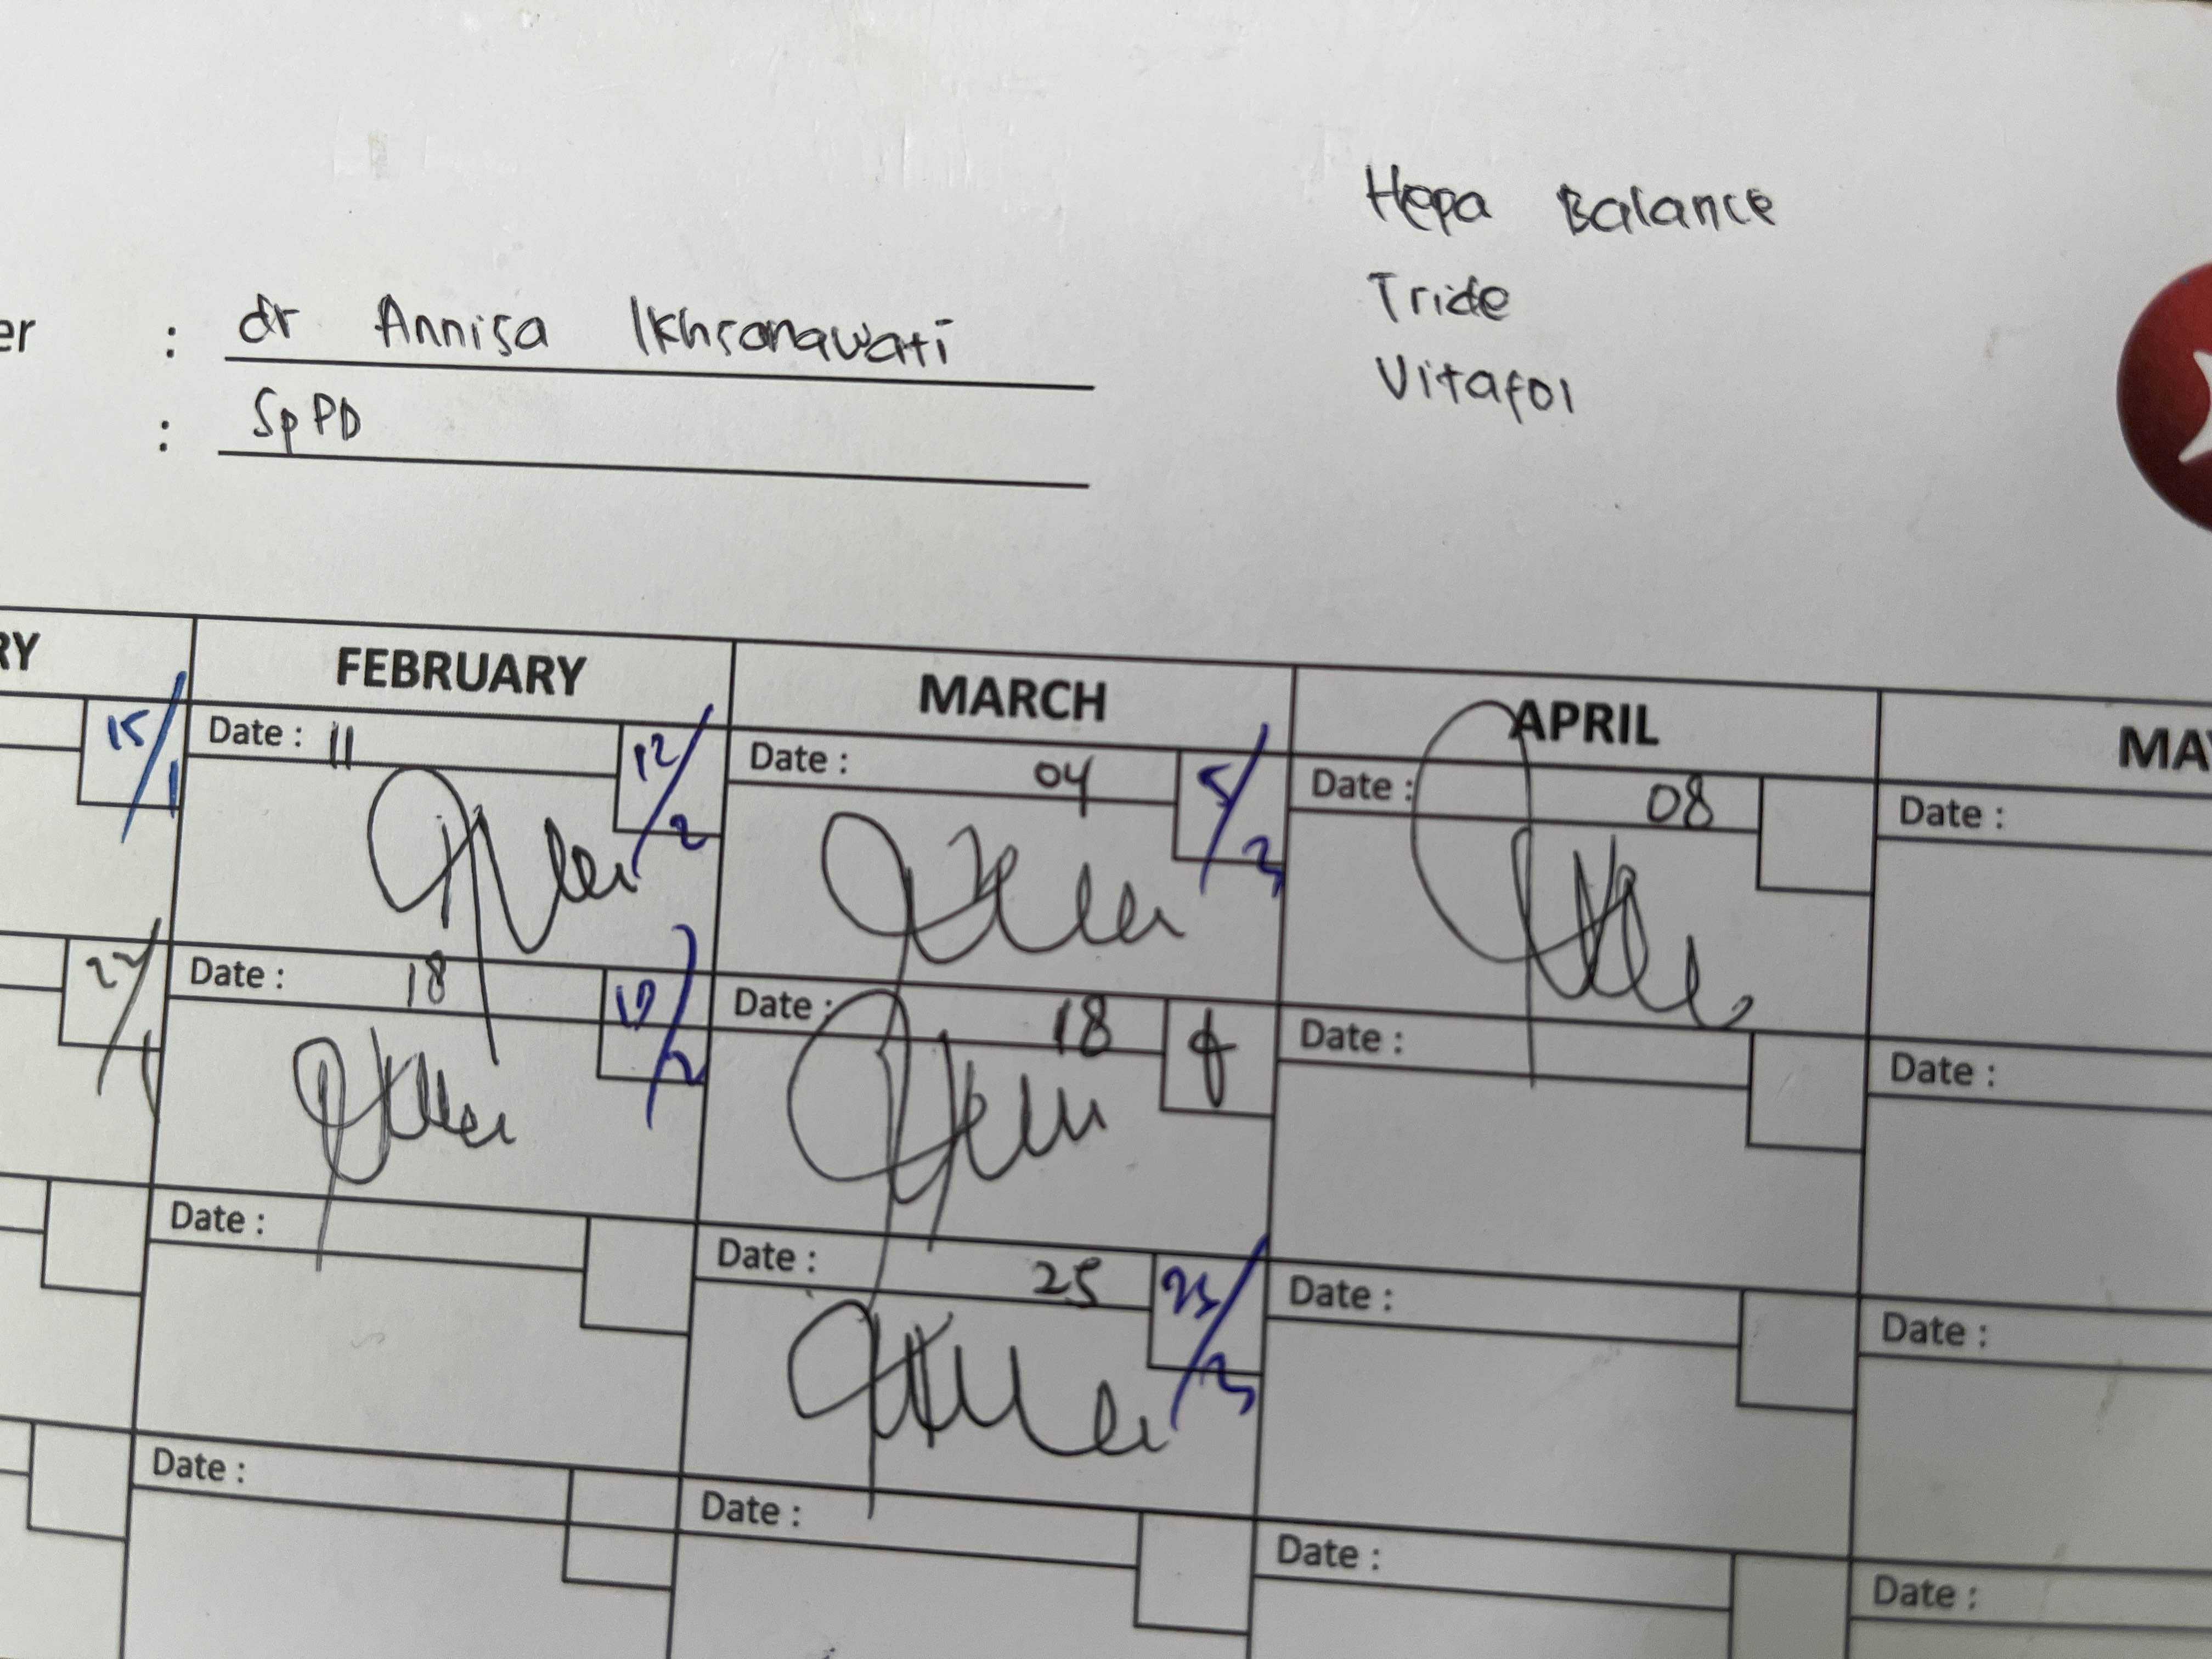 Hepa Balance
Tride
Vitafol
er : dr Annisa Ikhsanawati
: SpPD
RY FEBRUARY MARCH APRIL MA
15/1 Date : 11 12/2 Date : 04 5/3 Date : 08 Date :
Date : 18 19/2 Date : 18 Date : Date :
Date : Date : 25 25/3 Date : Date :
Date : Date : Date : Date :